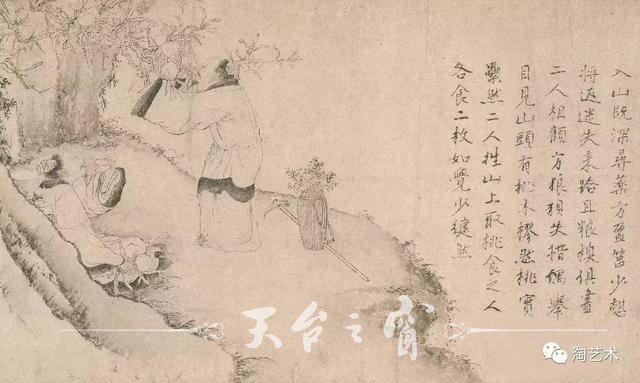 入山既深尋藥方盈筥少憩
將返迷失来路且粮糗俱盡
二人相顧方狼狽失措偶舉
目見山頭有桃木樛然桃實
纍然二人徃山上取桃食之人
各食二枚如覺少健然
天台之窗
淘艺术